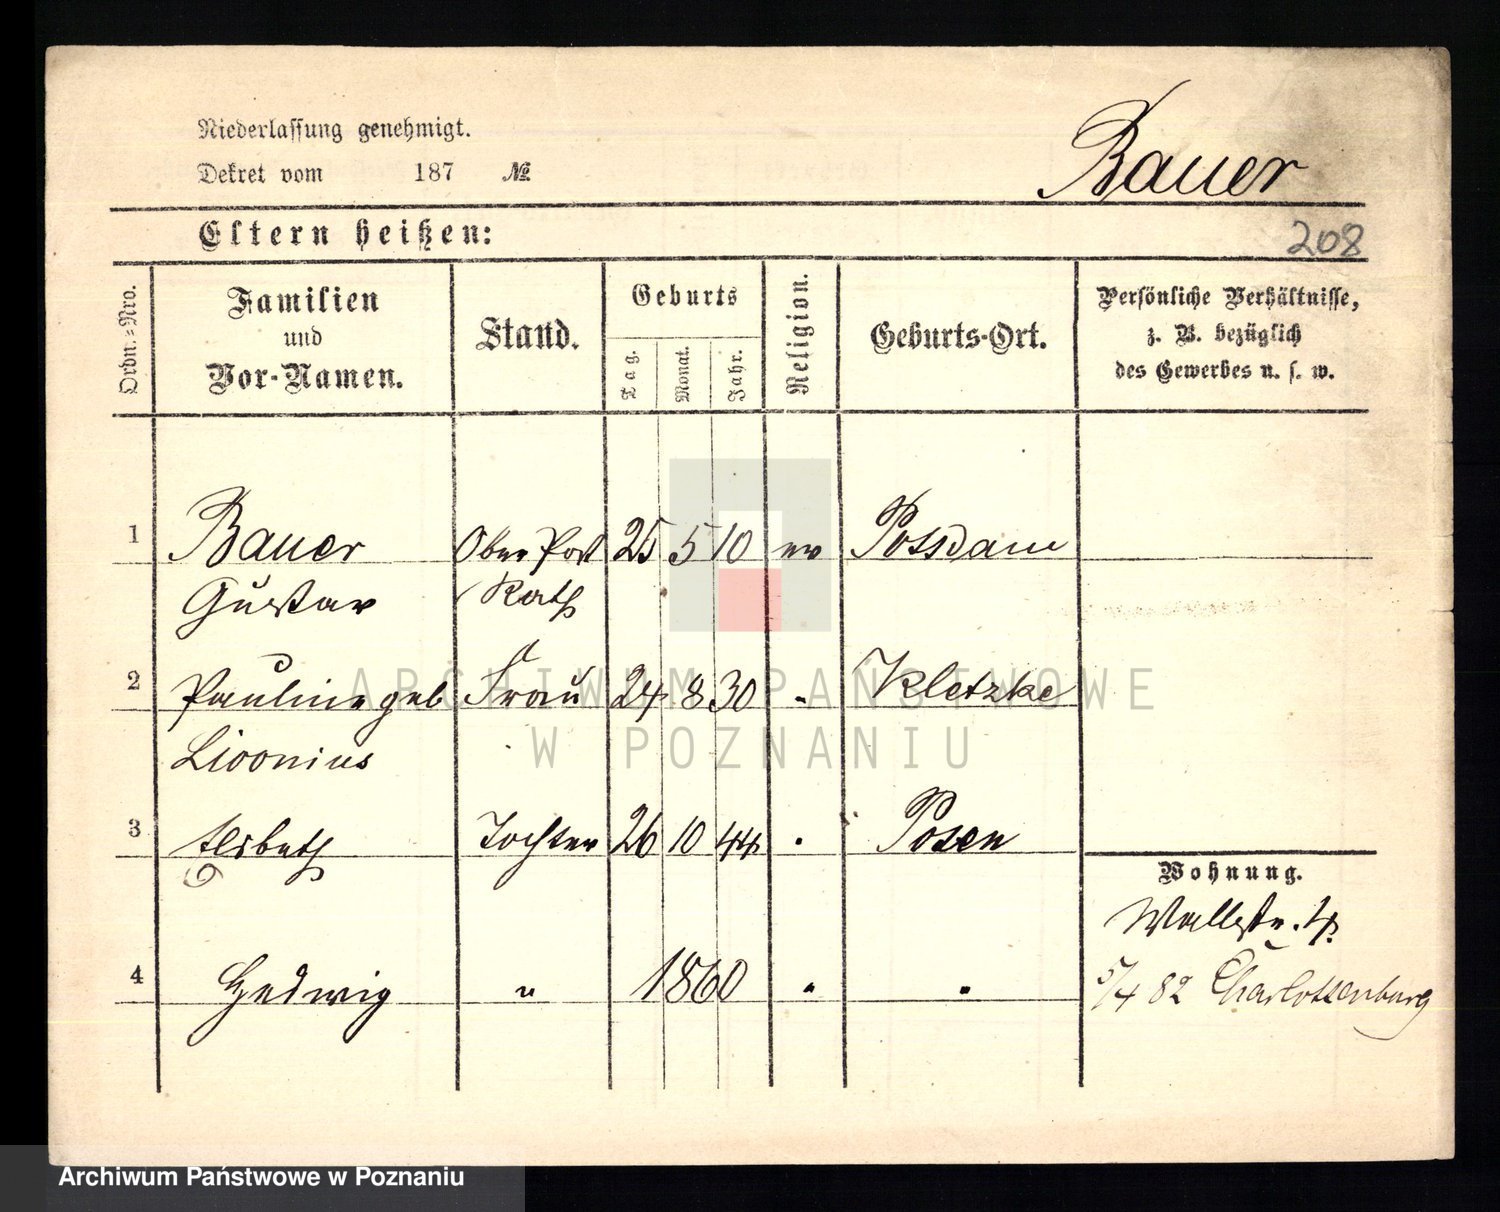 Niederlassung genehmigt.
Dekret vom 187 №
Bauer
Eltern heißen:
208
Ordn.-Nro.
Familien
und
Vor-Namen.
Stand.
Geburts
Tag.
Monat.
Jahr.
Religion.
Geburts-Ort.
Persönliche Verhältnisse,
z. B. bezüglich
des Gewerbes u. s. w.
1 Bauer Ober Post 25 5 10 ev Potsdam
Gustav Rath
2 Pauline geb Frau 24 8 30 " Kletzke
Livonius
3 Elsbeth Tochter 26 10 44 " Posen
Wohnung.
Wallstr. 4.
4 Hedwig " 1860 " "
5/4 82 Charlottenburg
ARCHIWUM PAŃSTWOWE
W POZNANIU
Archiwum Państwowe w Poznaniu